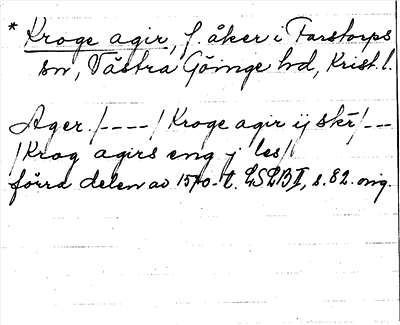 * Kroge agir, f. åker i Farstorps
sn, Västra Göinge hd, Krist. l.
Ager. /----/ Kroge agir ij skr̄ /---
/Krog agirs eng j les/
förra delen av 1570-t. LSLBII, s. 82. orig.